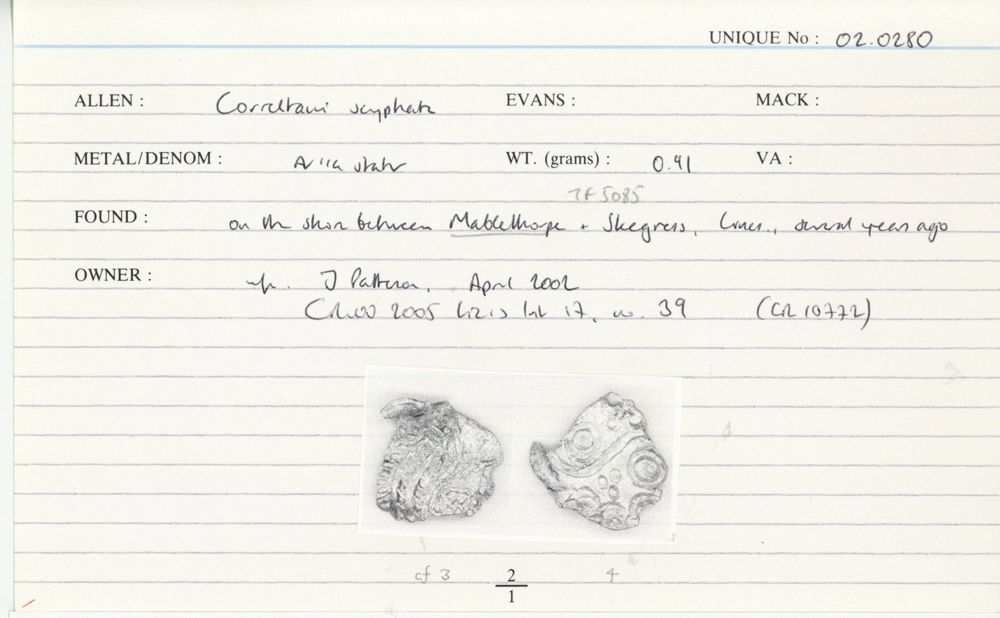 UNIQUE No : 02.0280
ALLEN : Correltavi scyphate EVANS : MACK :
METAL/DENOM : stater WT. (grams) : 0.91 VA :
TF 5085
FOUND : on the shore between Mablethorpe + Skegness, Lincs., several years ago
OWNER : J Patterson, April 2002
2005 list 17, no. 39 (CR 10772)
cf 3 2/1 4